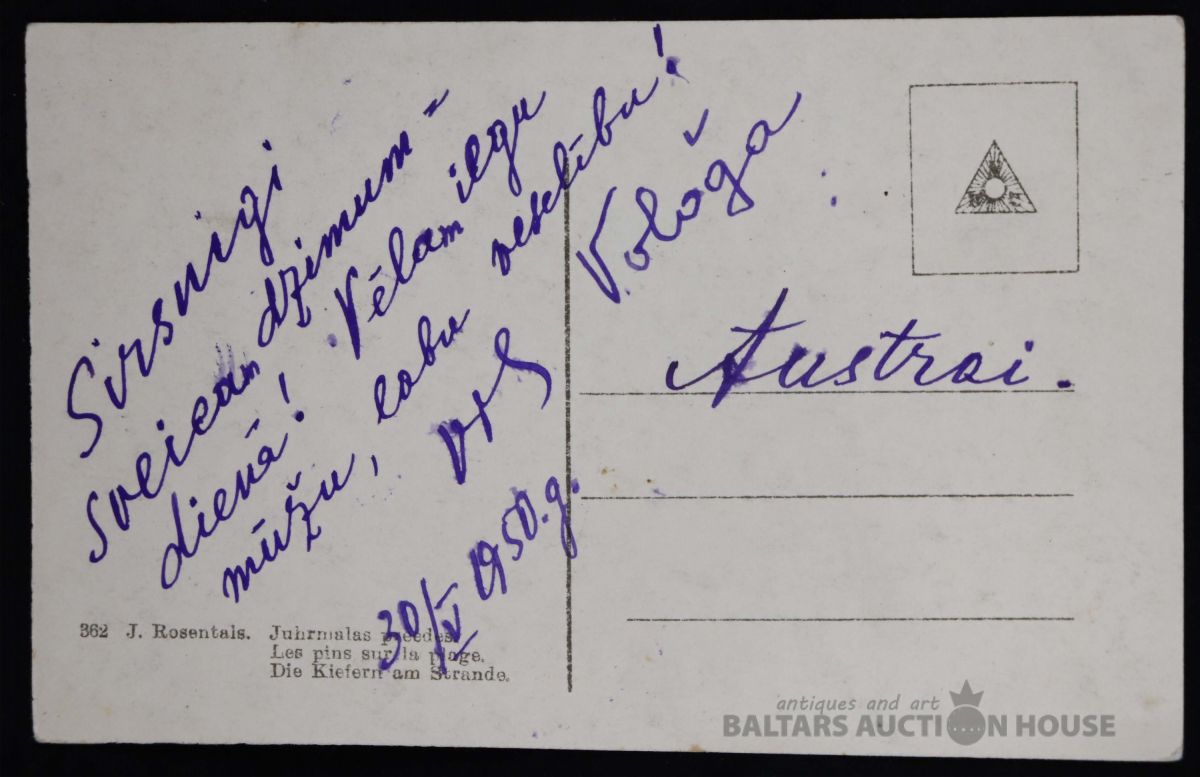 Sirsnigi
sveicam dzimum-
dienā! Vēlam ilgu
mūžu, labu veselību!
30/V 1950.g.
Austrai.
362 J. Rosentals. Juhrmalas preedes.
Les pins sur la plage.
Die Kiefern am Strande.
antiques and art
BALTARS AUCTION HOUSE